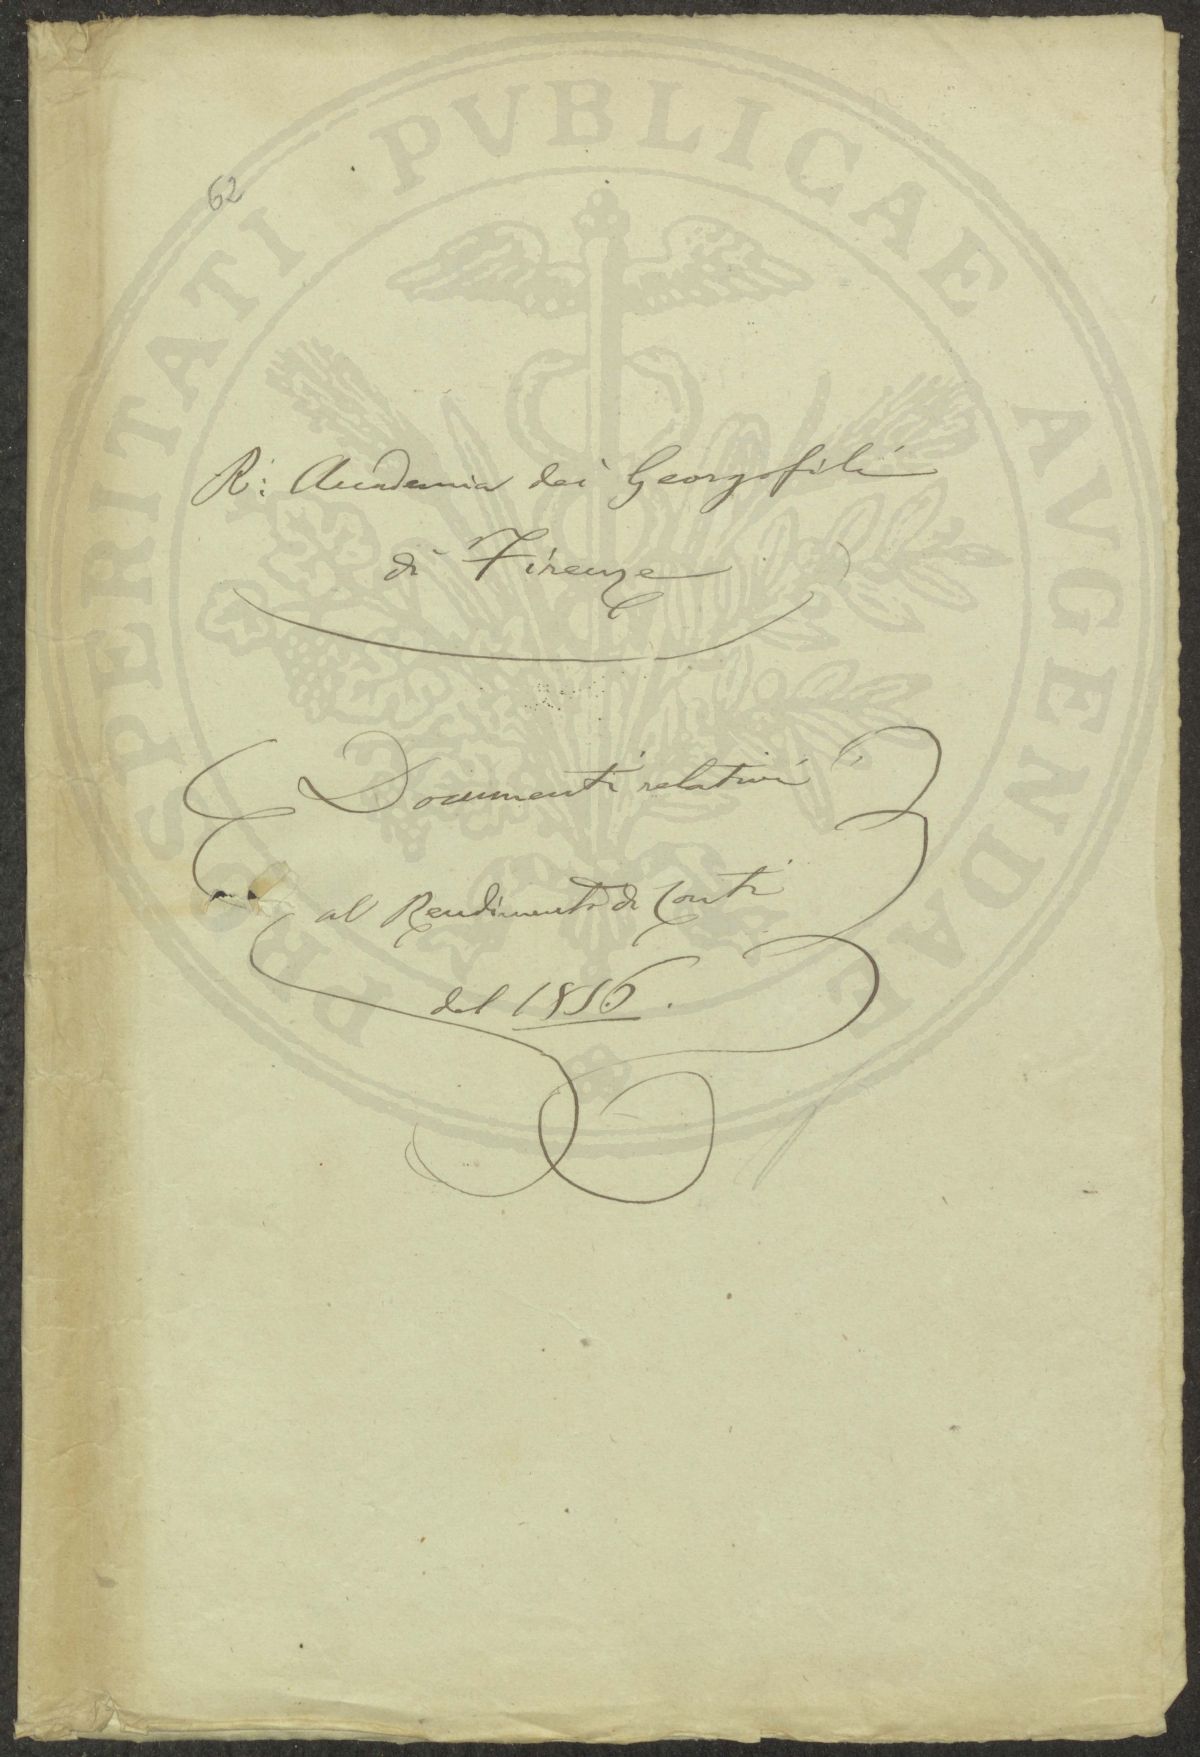 62
PROSPERITATI PVBLICAE AVGENDAE
R: Accademia dei Georgofili
di Firenze
Documenti relativi
al Rendimento di Conti
del 1856.